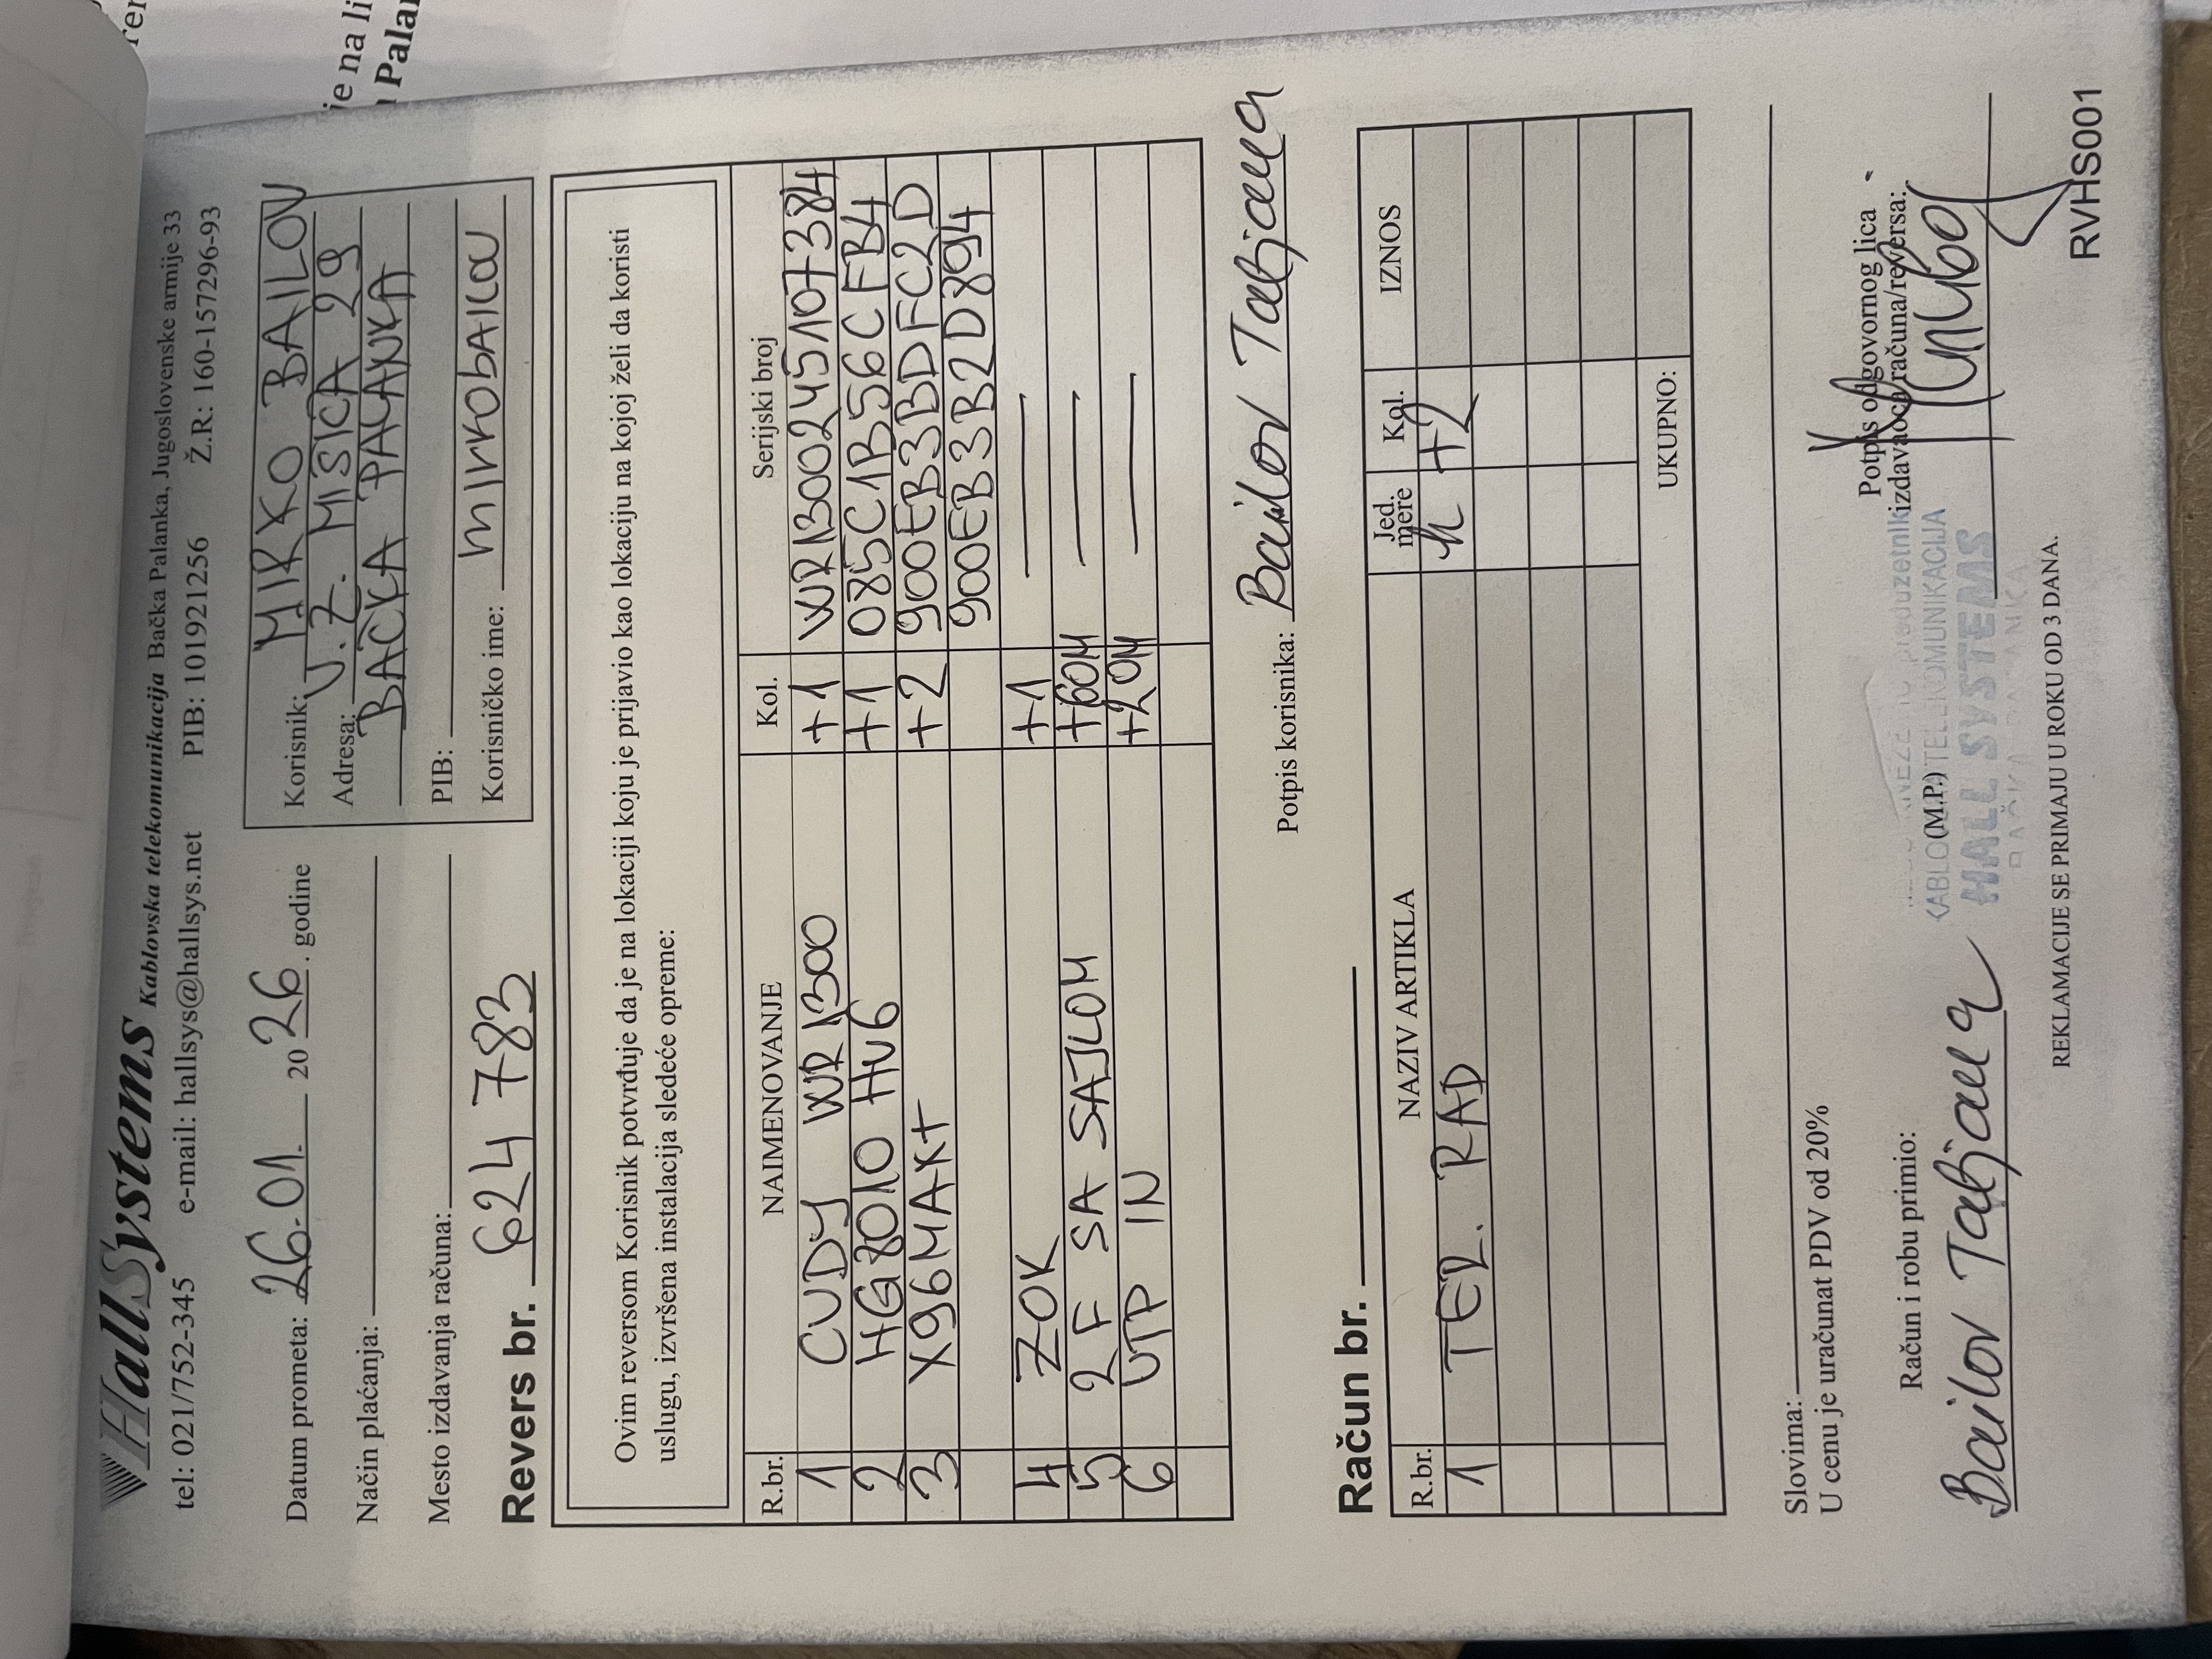 HallSystems Kablovska telekomunikacija Bačka Palanka, Jugoslovenske armije 33
tel: 021/752-345 e-mail: hallsys@hallsys.net PIB: 101921256 Ž.R: 160-1571296-93
Datum prometa: 26.01. 2026. godine
Način plaćanja:
Mesto izdavanja računa:
Korisnik: MIRKO BAILOV
Adresa: V. Ž. MISICA 29
BAČKA PALANKA
PIB:
Korisničko ime: mirkobailov
Revers br. 624 783
Ovim reversom Korisnik potvrđuje da je na lokaciji koju je prijavio kao lokaciju na kojoj želi da koristi
uslugu, izvršena instalacija sledeće opreme:
R.br. NAIMENOVANJE Kol. Serijski broj
1 CUDY WR1300 +1 WR1300245107384
2 HG8010 Hv6 +1 085C1B56CFB4
3 X96MAX+ +2 900EB3BDFC2D
900EB3B2D894
4 ZOK +1
5 2F SA SAJLOM +60M
6 UTP IN +20M
Potpis korisnika: Bailov Tatjana
Račun br.
R.br. NAZIV ARTIKLA Jed. mere Kol. IZNOS
1 TER. RAD h +2
UKUPNO:
Slovima:
U cenu je uračunat PDV od 20%
Račun i robu primio:
Bailov Tatjana
(M.P.)
KABLOVSKA TELEKOMUNIKACIJA
HALL SYSTEMS
BAČKA PALANKA
Potpis odgovornog lica
izdavaoca računa/reversa:
REKLAMACIJE SE PRIMAJU U ROKU OD 3 DANA.
RVHS001
je na li
Palan